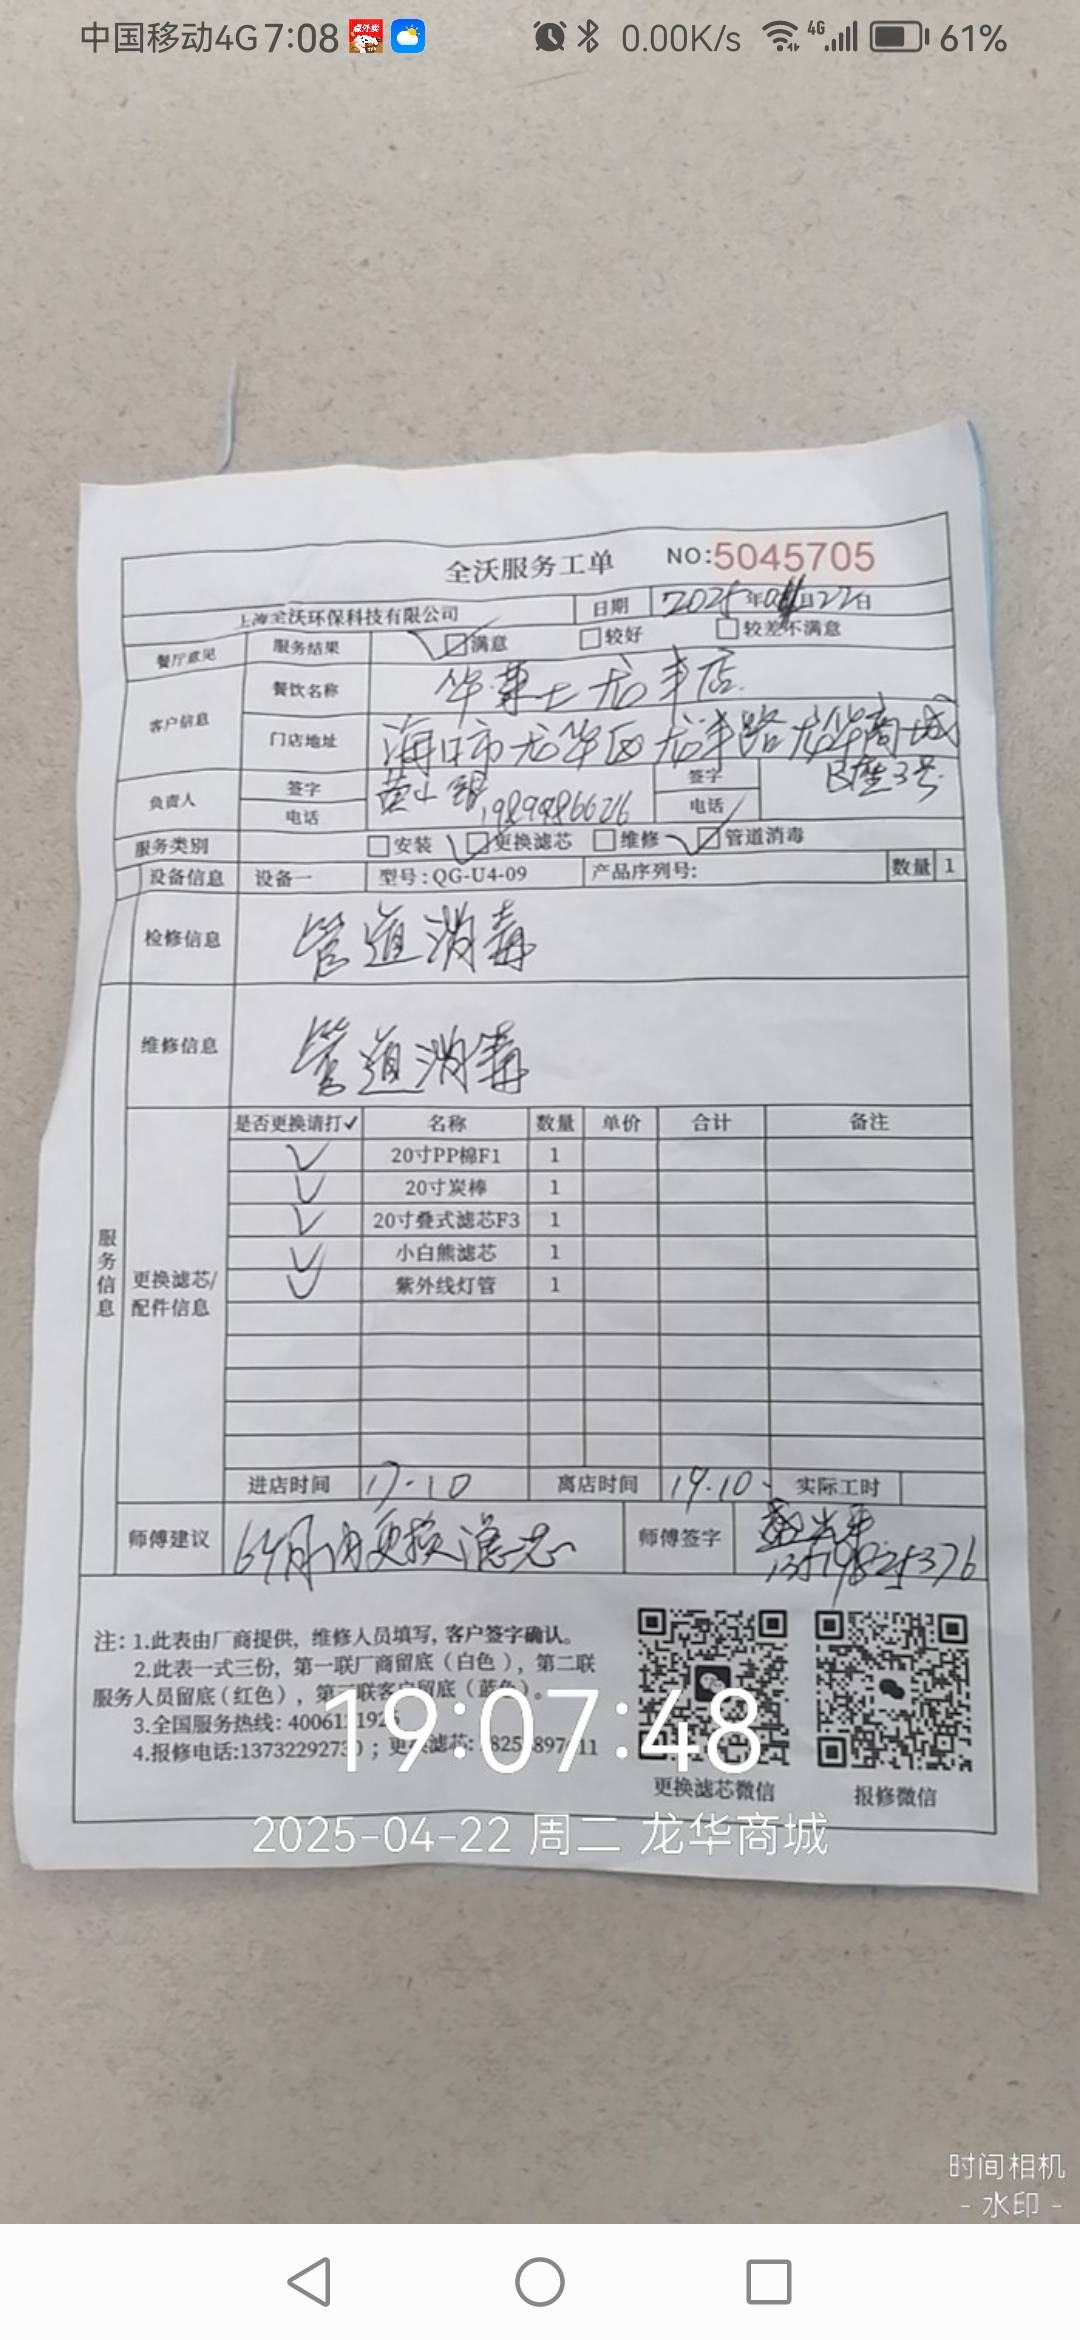 中国移动4G 7:08 0.00K/s 4G 61%
全沃服务工单 NO:5045705
上海全沃环保科技有限公司 日期 2025年04月22日
餐厅意见 服务结果 满意 较好 较差不满意
客户信息 餐饮名称 华莱士龙丰店
门店地址 海口市龙华区龙丰路龙华商城
B座3号
负责人 签字 签字
电话 电话
服务类别 安装 更换滤芯 维修 管道消毒
设备信息 设备一 型号:QG-U4-09 产品序列号: 数量 1
检修信息 管道消毒
维修信息 管道消毒
服务信息
更换滤芯/配件信息
是否更换请打✓ 名称 数量 单价 合计 备注
✓ 20寸PP棉F1 1
✓ 20寸炭棒 1
✓ 20寸叠式滤芯F3 1
✓ 小白熊滤芯 1
✓ 紫外线灯管 1
进店时间 17.10 离店时间 19.10 实际工时
师傅建议 6个月内更换滤芯 师傅签字
注: 1.此表由厂商提供, 维修人员填写, 客户签字确认。
2.此表一式三份, 第一联厂商留底(白色), 第二联
服务人员留底(红色), 第三联客户留底(蓝色)。
3.全国服务热线:
4.报修电话: ; 更换滤芯:
更换滤芯微信 报修微信
19:07:48
2025-04-22 周二 龙华商城
时间相机
- 水印 -